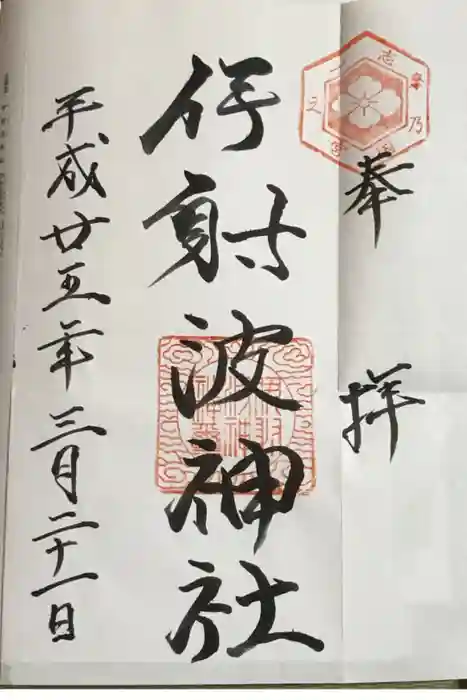 奉拝
伊射波神社
平成廿五年三月二十一日